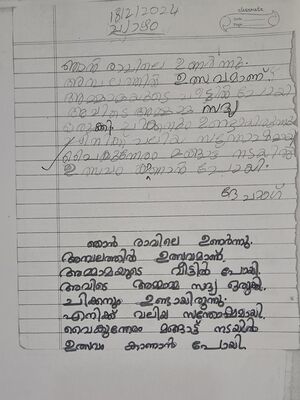 classmate
Date
Page
18/2/2024
ഞാൻ രാവിലെ ഉണർന്നു.
അമ്പലത്തിൽ ഉത്സവമാണ്.
അമ്മാമയുടെ വീട്ടിൽ പോയി
അവിടെ അമ്മമ്മ സദ്യ
ഒരുക്കി ചിക്കനും ഉണ്ടായിരുന്നു
എനിക്ക് വലിയ സന്തോഷമായി
വൈകുന്നേരം മങ്ങാട്ട് നടയിൽ
ഉത്സവം കാണാൻ പോയി.
ഞാൻ രാവിലെ ഉണർന്നു.
അമ്പലത്തിൽ ഉത്സവമാണ്.
അമ്മാമയുടെ വീട്ടിൽ പോയി.
അവിടെ അമ്മമ്മ സദ്യ ഒരുക്കി.
ചിക്കനും ഉണ്ടായിരുന്നു.
എനിക്ക് വലിയ സന്തോഷമായി.
വൈകുന്നേരം മങ്ങാട്ട് നടയിൽ
ഉത്സവം കാണാൻ പോയി.